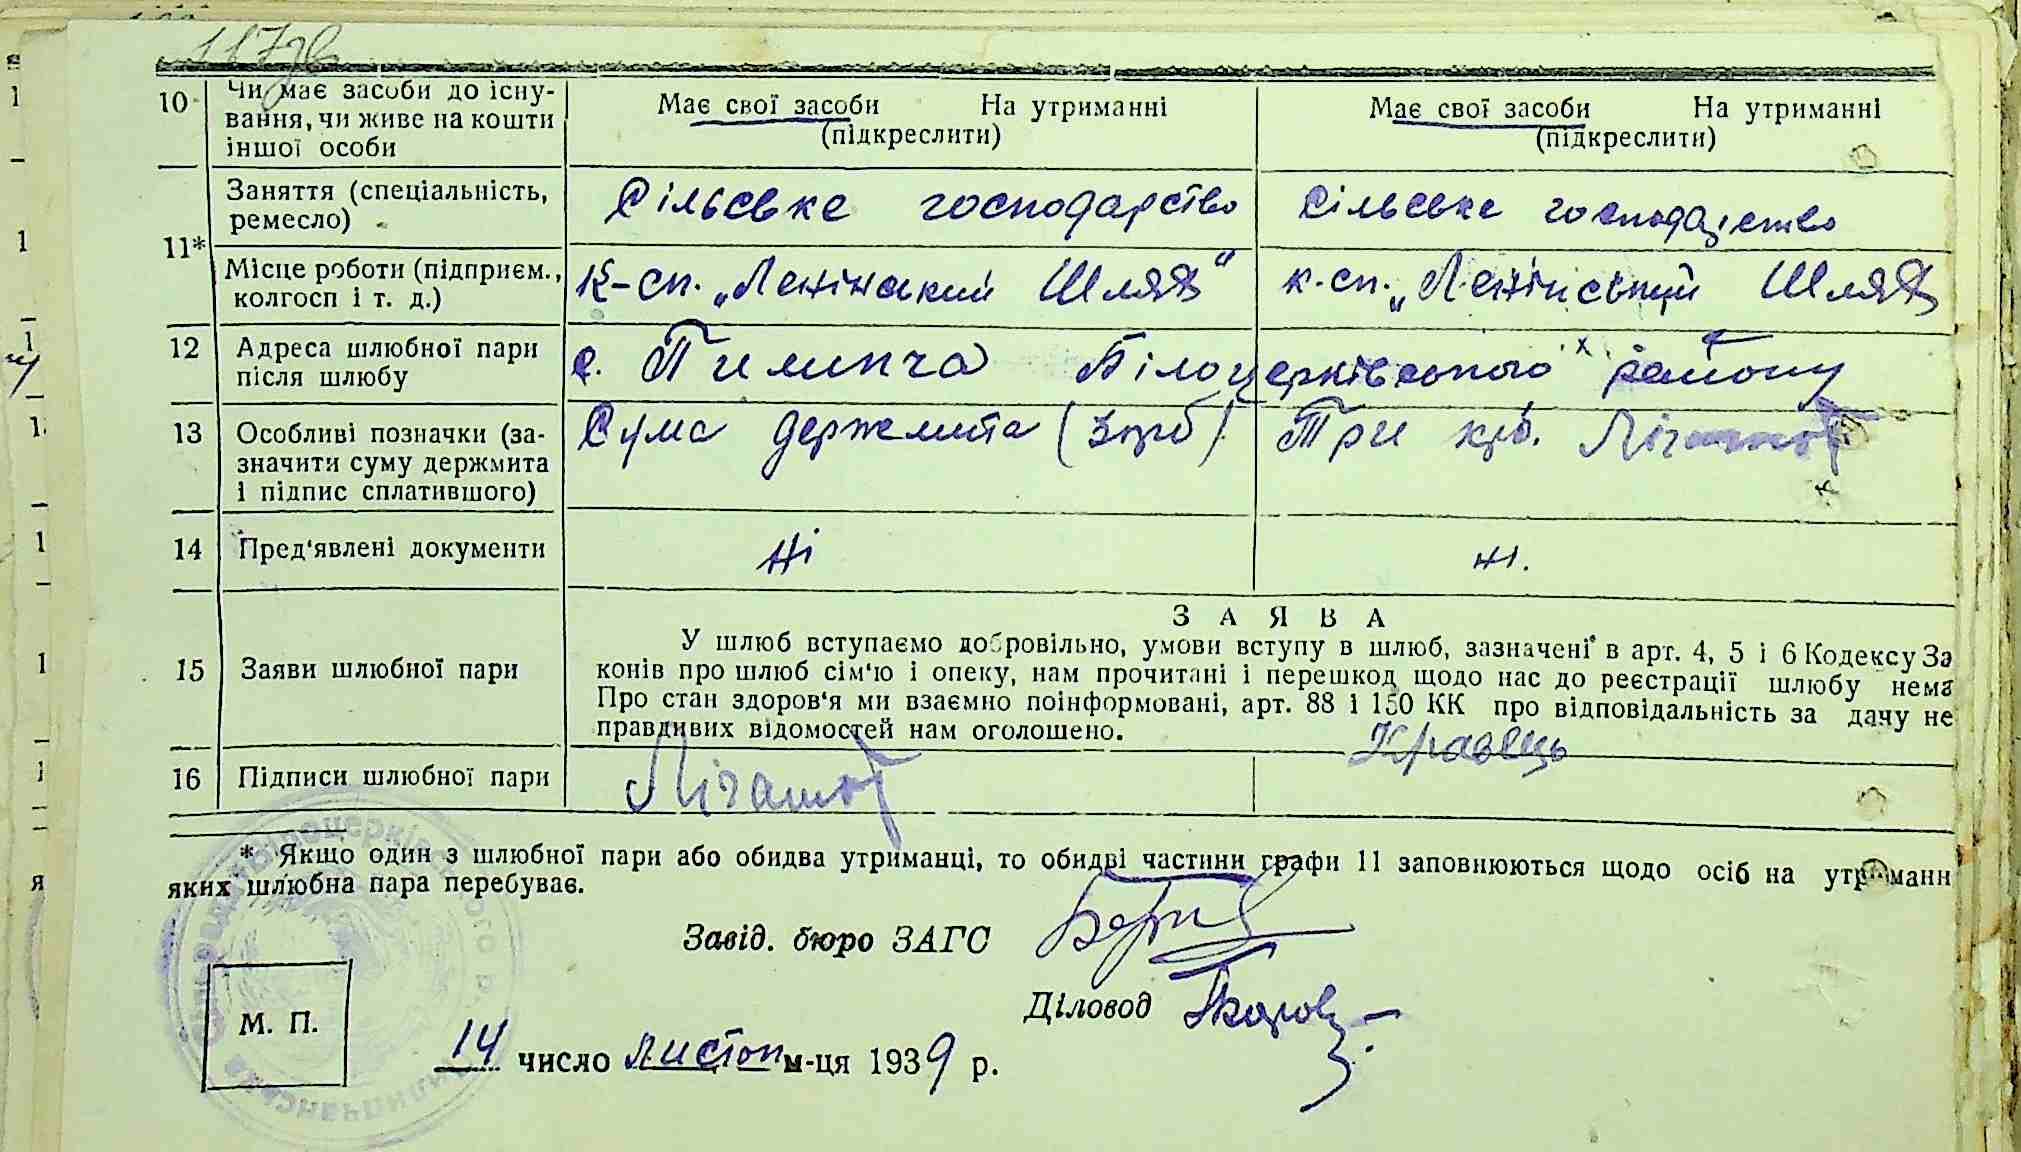 117зв
10 Чи має засоби до існу-
вання, чи живе на кошти
іншої особи
Має свої засоби На утриманні
(підкреслити)
Має свої засоби На утриманні
(підкреслити)
11*
Заняття (спеціальність,
ремесло)
Сільське господарство
Сільське господарство
Місце роботи (підприєм.,
колгосп і т. д.)
К-сп. „Ленінський Шлях"
к.сп. „Ленінський Шлях
12 Адреса шлюбної пари
після шлюбу
с. Пилипча Білоцерківського району
13 Особливі позначки (за-
значити суму держмита
і підпис сплатившого)
Сума держмита (3крб)
Три крб.
14 Пред'явлені документи
Ні
ні.
15 Заяви шлюбної пари
ЗАЯВА
У шлюб вступаємо добровільно, умови вступу в шлюб, зазначені в арт. 4, 5 і 6 Кодексу За
конів про шлюб сім'ю і опеку, нам прочитані і перешкод щодо нас до реєстрації шлюбу нема
Про стан здоров'я ми взаємно поінформовані, арт. 88 і 150 КК про відповідальність за дачу не
правдивих відомостей нам оголошено.
16 Підписи шлюбної пари
Кравець
* Якщо один з шлюбної пари або обидва утриманці, то обидві частини графи 11 заповнюються щодо осіб на утриманн
яких шлюбна пара перебуває.
Завід. бюро ЗАГС
Діловод
М. П.
14 число листоп м-ця 1939 р.